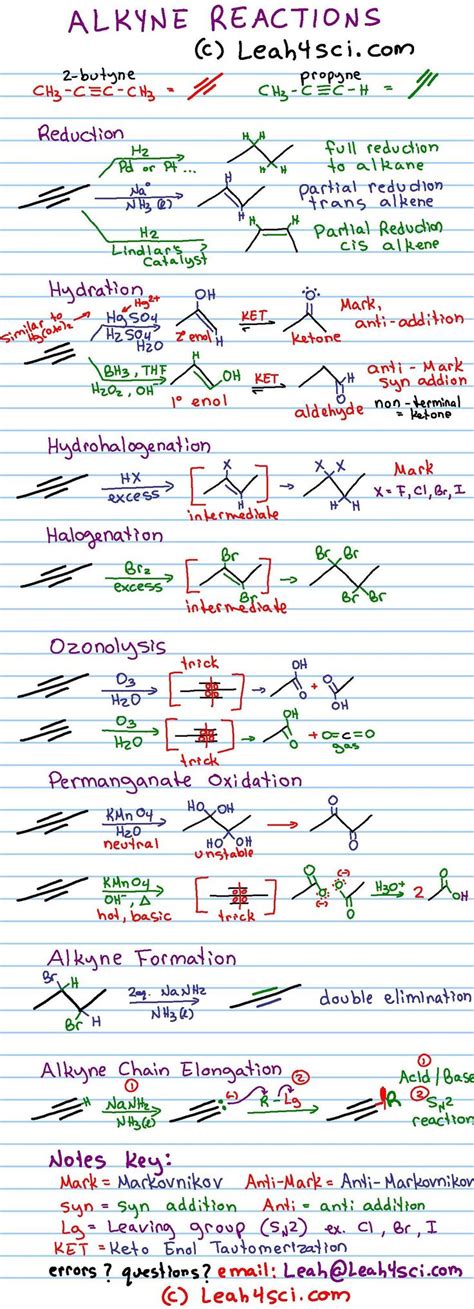 ALKYNE REACTIONS
(c) Leah4sci.com
2-butyne propyne
CH₃-C≡C-CH₃ = CH₃-C≡C-H =
Reduction
H₂
Pd or Pt...
H H
H H
full reduction
to alkane
Na°
NH₃(ℓ)
H
H
partial reduction
trans alkene
H₂
Lindlar's
Catalyst
H H
Partial Reduction
cis alkene
Hydration
Similar to
Hg²⁺
HgSO₄
H₂SO₄
H₂O
OH
H
2° enol
KET
O
ketone
Mark,
anti-addition
BH₃, THF
H₂O₂, OH⁻
H
OH
1° enol
KET
H
O
aldehyde
anti - Mark
syn addion
non-terminal
= ketone
Hydrohalogenation
HX
excess
X
H
intermediate
X X
H H
Mark
X = F, Cl, Br, I
Halogenation
Br₂
excess
Br
Br
intermediate
Br Br
Br Br
Ozonolysis
O₃
H₂O
trick
OH
O
+
O
OH
O₃
H₂O
trick
OH
O
+ O=C=O
gas
Permanganate Oxidation
KMnO₄
H₂O
neutral
HO OH
HO OH
unstable
O
O
KMnO₄
OH⁻, Δ
hot, basic
trick
O
O (-)
(-) O
O
H₃O⁺
2
O
OH
Alkyne Formation
Br H
Br H
2eq. NaNH₂
NH₃(ℓ)
double elimination
Alkyne Chain Elongation
H
①
NaNH₂
NH₃(ℓ)
(-)
②
R-Lg
R
①
Acid/Base
②
SN2
reaction
Notes Key:
Mark = Markovnikov Anti-Mark = Anti-Markovnikov
syn = syn addition Anti = anti addition
Lg = Leaving group (SN2) ex. Cl, Br, I
KET = Keto Enol Tautomerization
errors? questions? email: Leah@Leah4sci.com
(c) Leah4sci.com